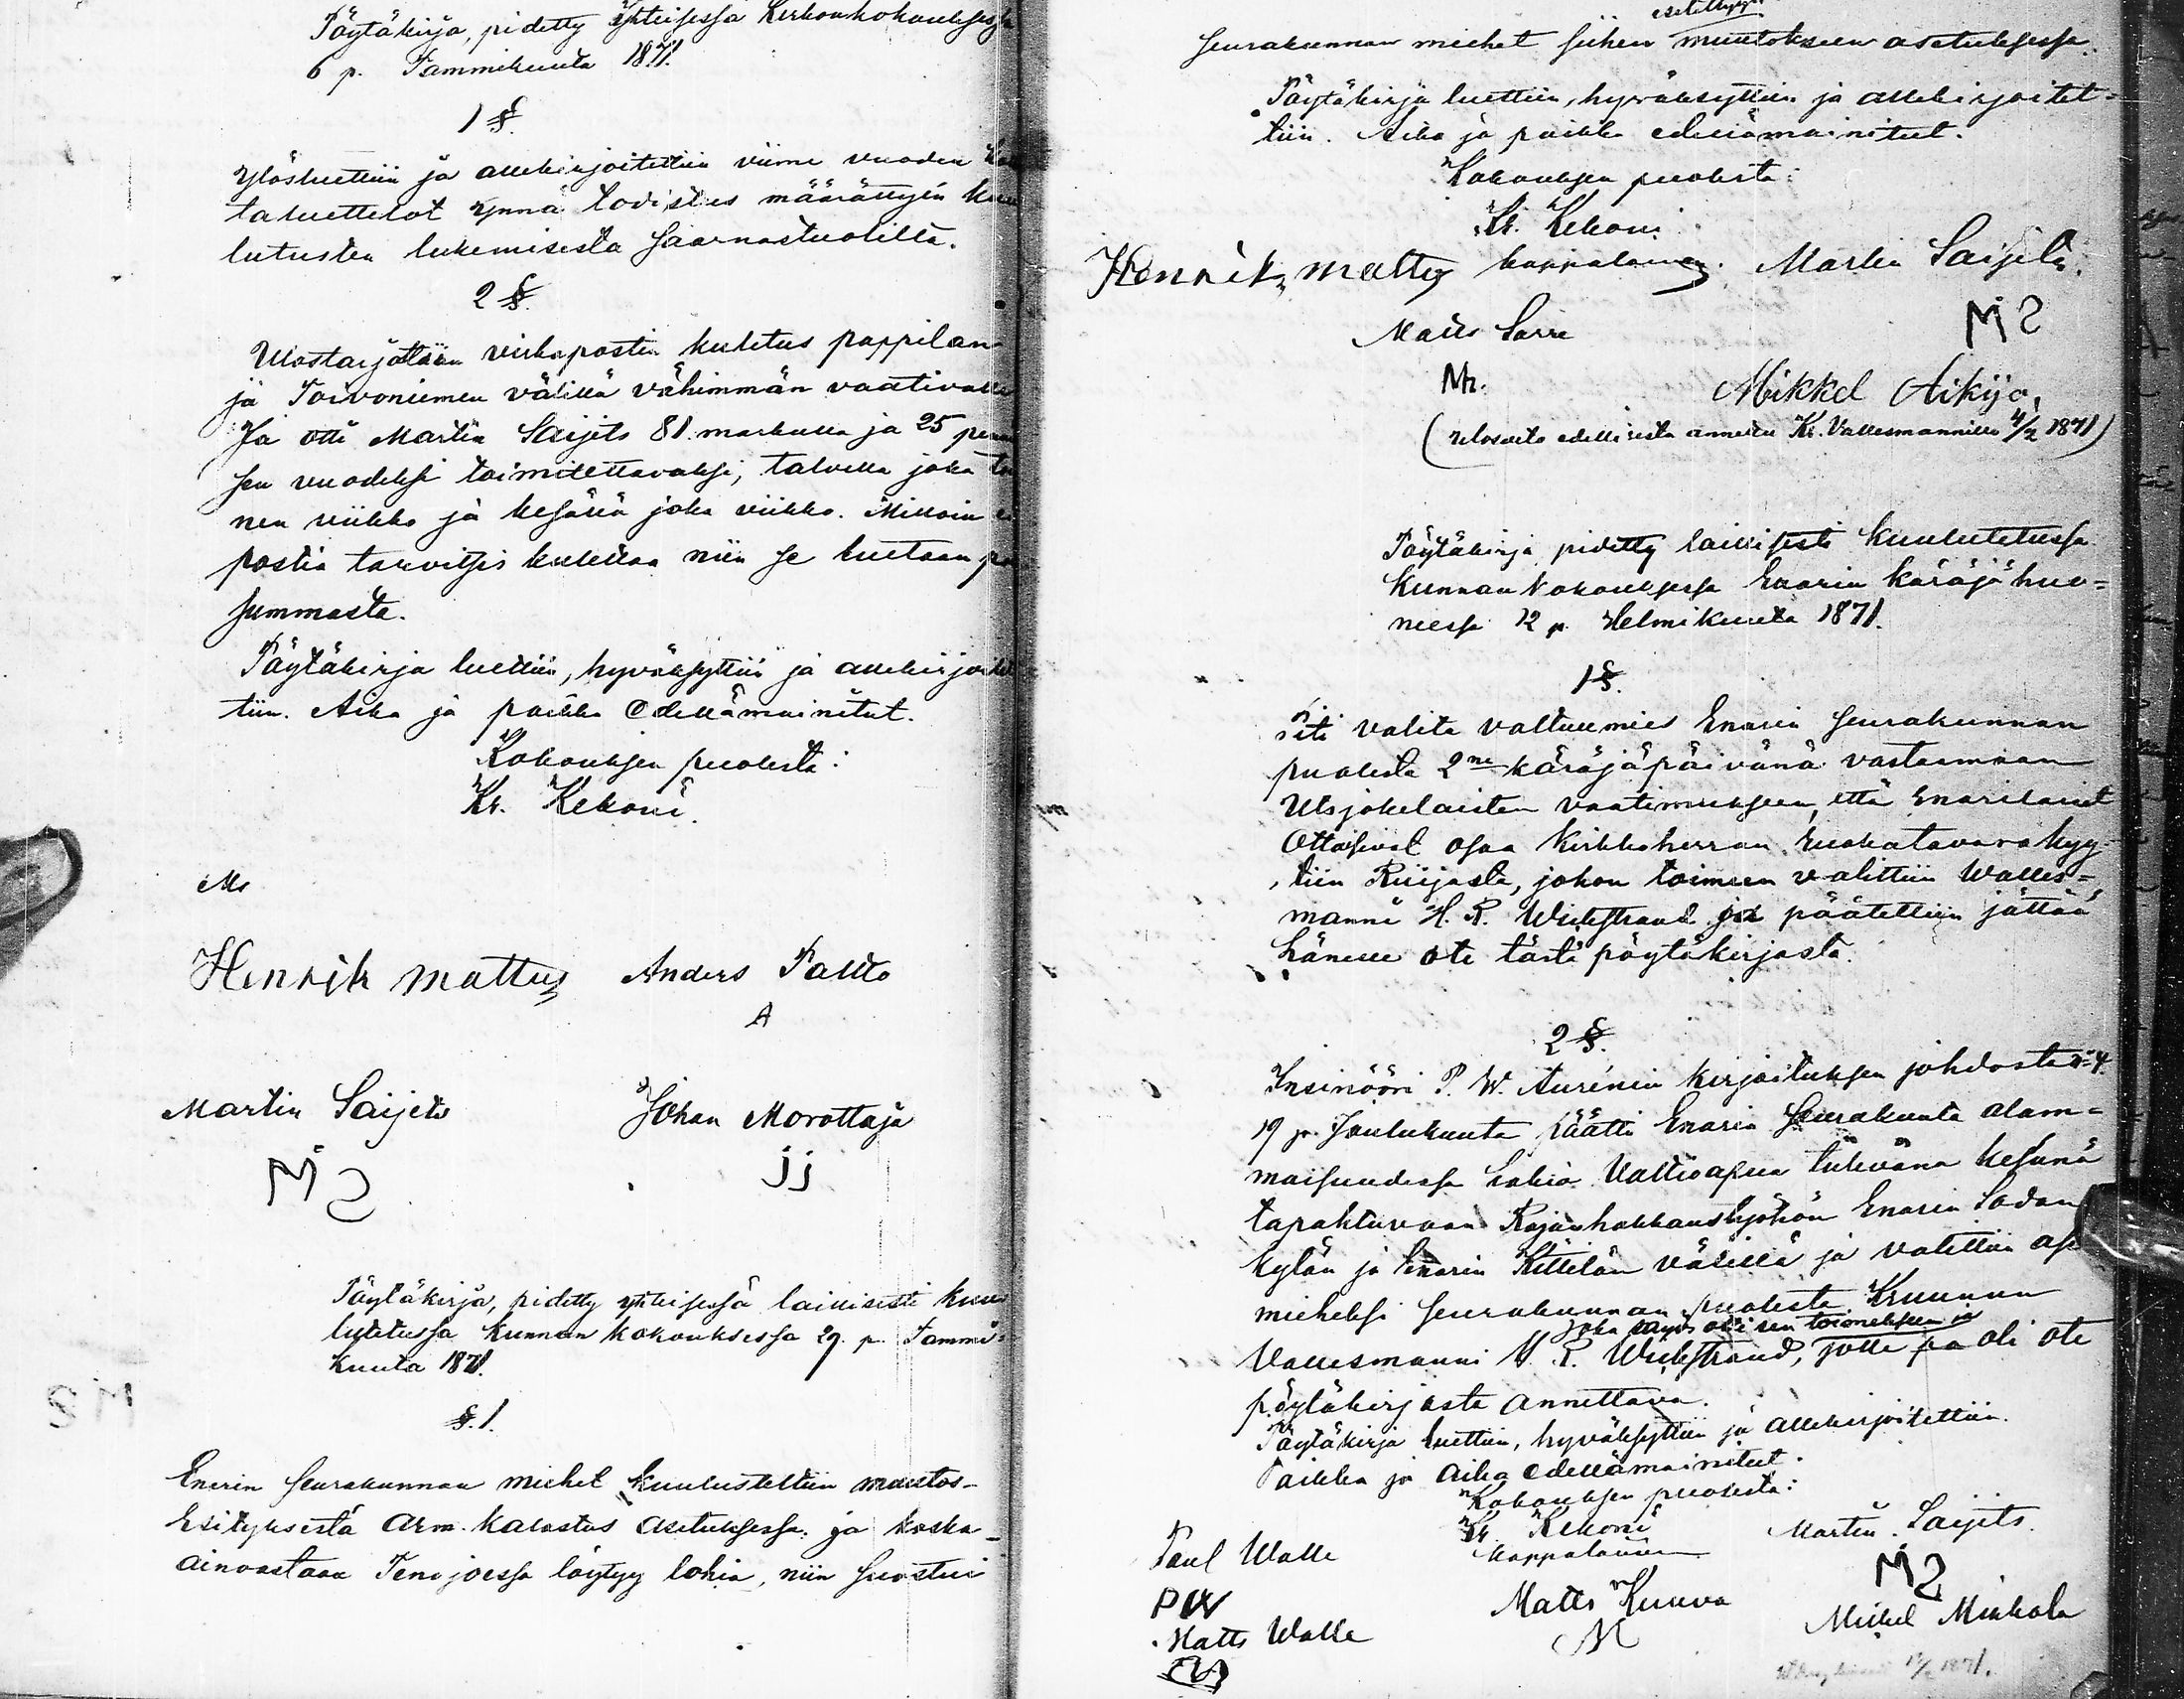 Pöytäkirja, pidetty Yhteisessä Kirkonkokouksessa
6 p. Tammikuuta 1871.
1 §.
Ylösluettiin ja allekirjoitettiin viime vuoden
taluettelot ynnä todistus määrättyin kuu
lutusten lukemisesta Saarnastuolilta.
2 §.
Ulostarjottiin virkapostin kuletus pappilan
ja Toivoniemen välillä vähimmän vaativalle
Ja otti Martin Saijets 81 markalla ja 25 pen
sen vuodeksi toimitettavaksi, talvella joka toi
nen viikko ja kesällä joka viikko. Milloin ei
postia tarvitsis kulettaa niin se luetaan po
summasta.
Pöytäkirja luettiin, hyväksyttiin ja allekirjoitet
tiin. Aika ja paikka Edellämainitut.
Kokouksen puolesta:
Kr. Kekoni.
Ms
Henrik Mattus Anders Paltto
A
Martin Saijets Johan Morottaja
M S jj
Pöytäkirja, pidetty yhteisessä laillisesti kuu
lutetussa Kunnan kokouksessa 29. p. Tammi-
kuuta 1871.
§. 1.
Enarin Seurakunnan miehet kuulusteltiin muutos-
Esityksestä Arm. Kalastus Asetuksessa. ja koska
ainoastaan Tenojoessa löytyy lohia, niin suostui
esitettyyn
Seurakunnan miehet siihen muutokseen asetuksessa.
Pöytäkirja luettiin, hyväksyttiin ja allekirjoitet=
tiin. Aika ja paikka edellämainitut.
Kokouksen puolesta:
Kr. Kekoni
Henrik Mattus kappalainen. Martin Saijets.
Matts Sarre M S
M. Mikkel Aikijo,
(Ulosveto edellisestä annettu Kr. Vallesmannille 4/2 1871)
Pöytäkirja pidetty laillisesti Kuulutetussa
Kunnan Kokouksessa Enarin käräjähuo=
neessa 12 p. Helmikuuta 1871.
1 §.
Piti valita valtuumies Enarin Seurakunnan
puolesta 2ne käräjäpäivänä vastaamaan
Utsjokelaisten vaatimukseen, että Enarilaiset
Ottaisivat osaa Kirkkoherran ruokatavara kyy-
tiin Ruijasta, johon toimeen valittiin Walles=
manni H. R. Wichstrand ja päätettiin jättää
hänelle ote tästä pöytäkirjasta.
2 §.
Insinööri P. W. Aurénin kirjoituksen johdosta № 4
19 p. Joulukuuta päätti Enarin Seurakunta alam=
maisuudessa hakia Valtioapua tulevana kesänä
tapahtuvaan Rajanhakkaustyöhön Enarin Sodan
kylän ja Enarin Kittilän välillä ja valittiin as
mieheksi Seurakunnan puolesta Kruunun
joka sanoi otti sen toimeksensa ja
Vallesmanni H. R. Wichstrand, jolle pa oli ote
pöytäkirjasta annettava.
Pöytäkirja luettiin, hyväksyttiin ja allekirjoitettiin.
Paikka ja Aika Edellämainitut.
Kokouksen puolesta:
Paul Walle Kr. Kekoni Martin Saijets.
kappalainen M S
PW Matts Kuuva Mickel Mickola
Matts Walle M
M
12/2 1871.